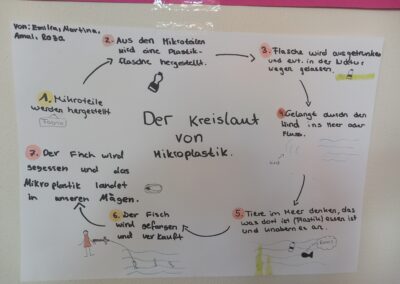 Von: Emilia, Martina,
Amal, Rosa
2. Aus den Mikroteilen
wird eine Plastik-
flasche hergestellt.
3. Flasche wird ausgetrunken
und evt. in der Natur
liegen gelassen.
1. Mikroteile
werden hergestellt
Der Kreislauf
von
Mikroplastik.
4. Gelangt durch den
Wind ins Meer oder
Fluss.
7. Der Fisch wird
gegessen und das
Mikroplastik landet
in unseren Mägen.
6. Der Fisch
wird gefangen
und verkauft
5. Tiere im Meer denken, das
was dort ist (Plastik) essen ist
und knabern es an.